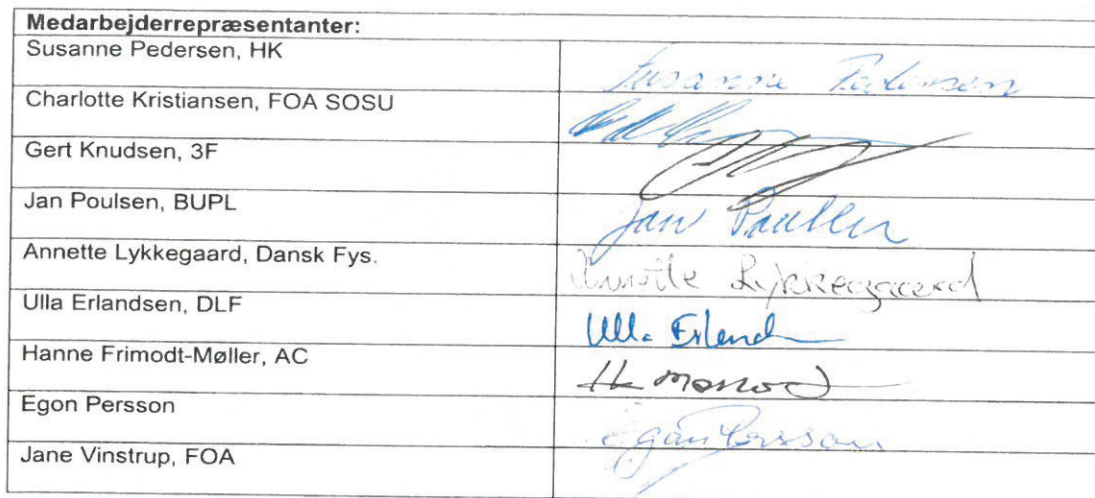 Medarbejderrepræsentanter:
Susanne Pedersen, HK
Susanne Pedersen
Charlotte Kristiansen, FOA SOSU
Gert Knudsen, 3F
Jan Poulsen, BUPL
Jan Poulsen
Annette Lykkegaard, Dansk Fys.
Annette Lykkegaard
Ulla Erlandsen, DLF
Ulla Erland
Hanne Frimodt-Møller, AC
Egon Persson
Egon Persson
Jane Vinstrup, FOA